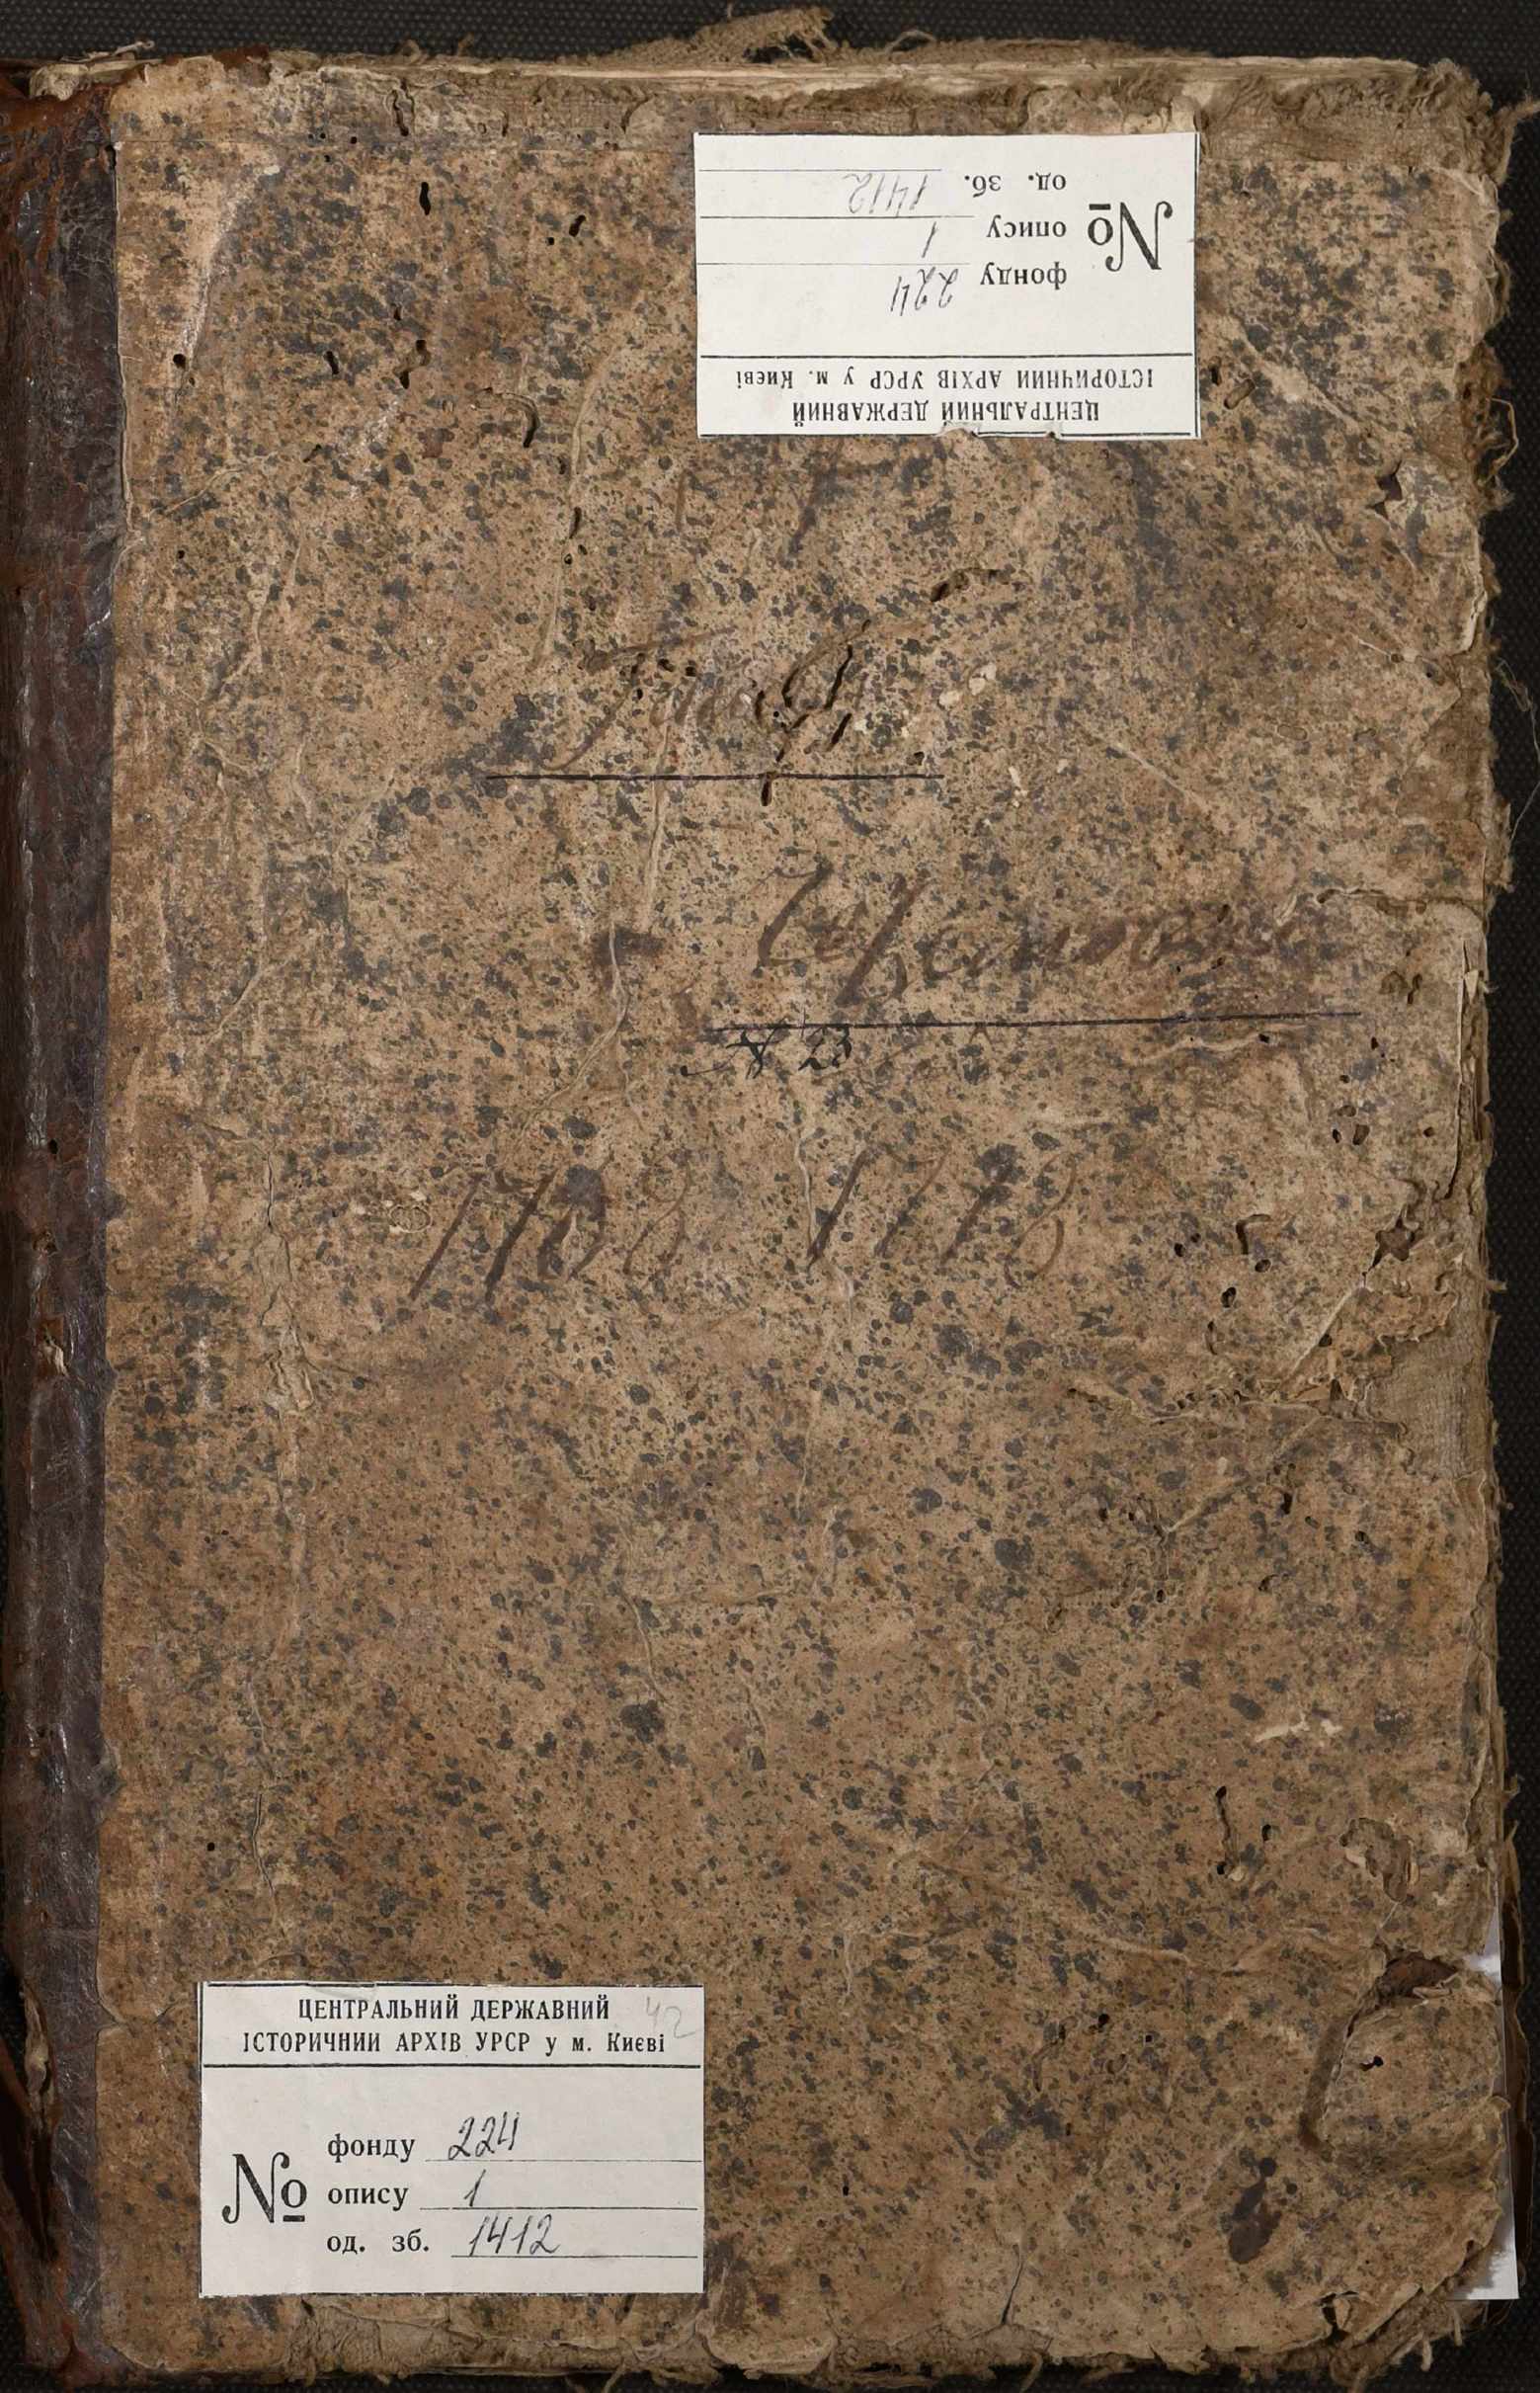 ЦЕНТРАЛЬНИЙ ДЕРЖАВНИЙ
ІСТОРИЧНИЙ АРХІВ УРСР у м. Києві
№
фонду 224
опису 1
од. зб. 1412
№ 23
1768 1778
ЦЕНТРАЛЬНИЙ ДЕРЖАВНИЙ
42
ІСТОРИЧНИЙ АРХІВ УРСР у м. Києві
№
фонду 224
опису 1
од. зб. 1412